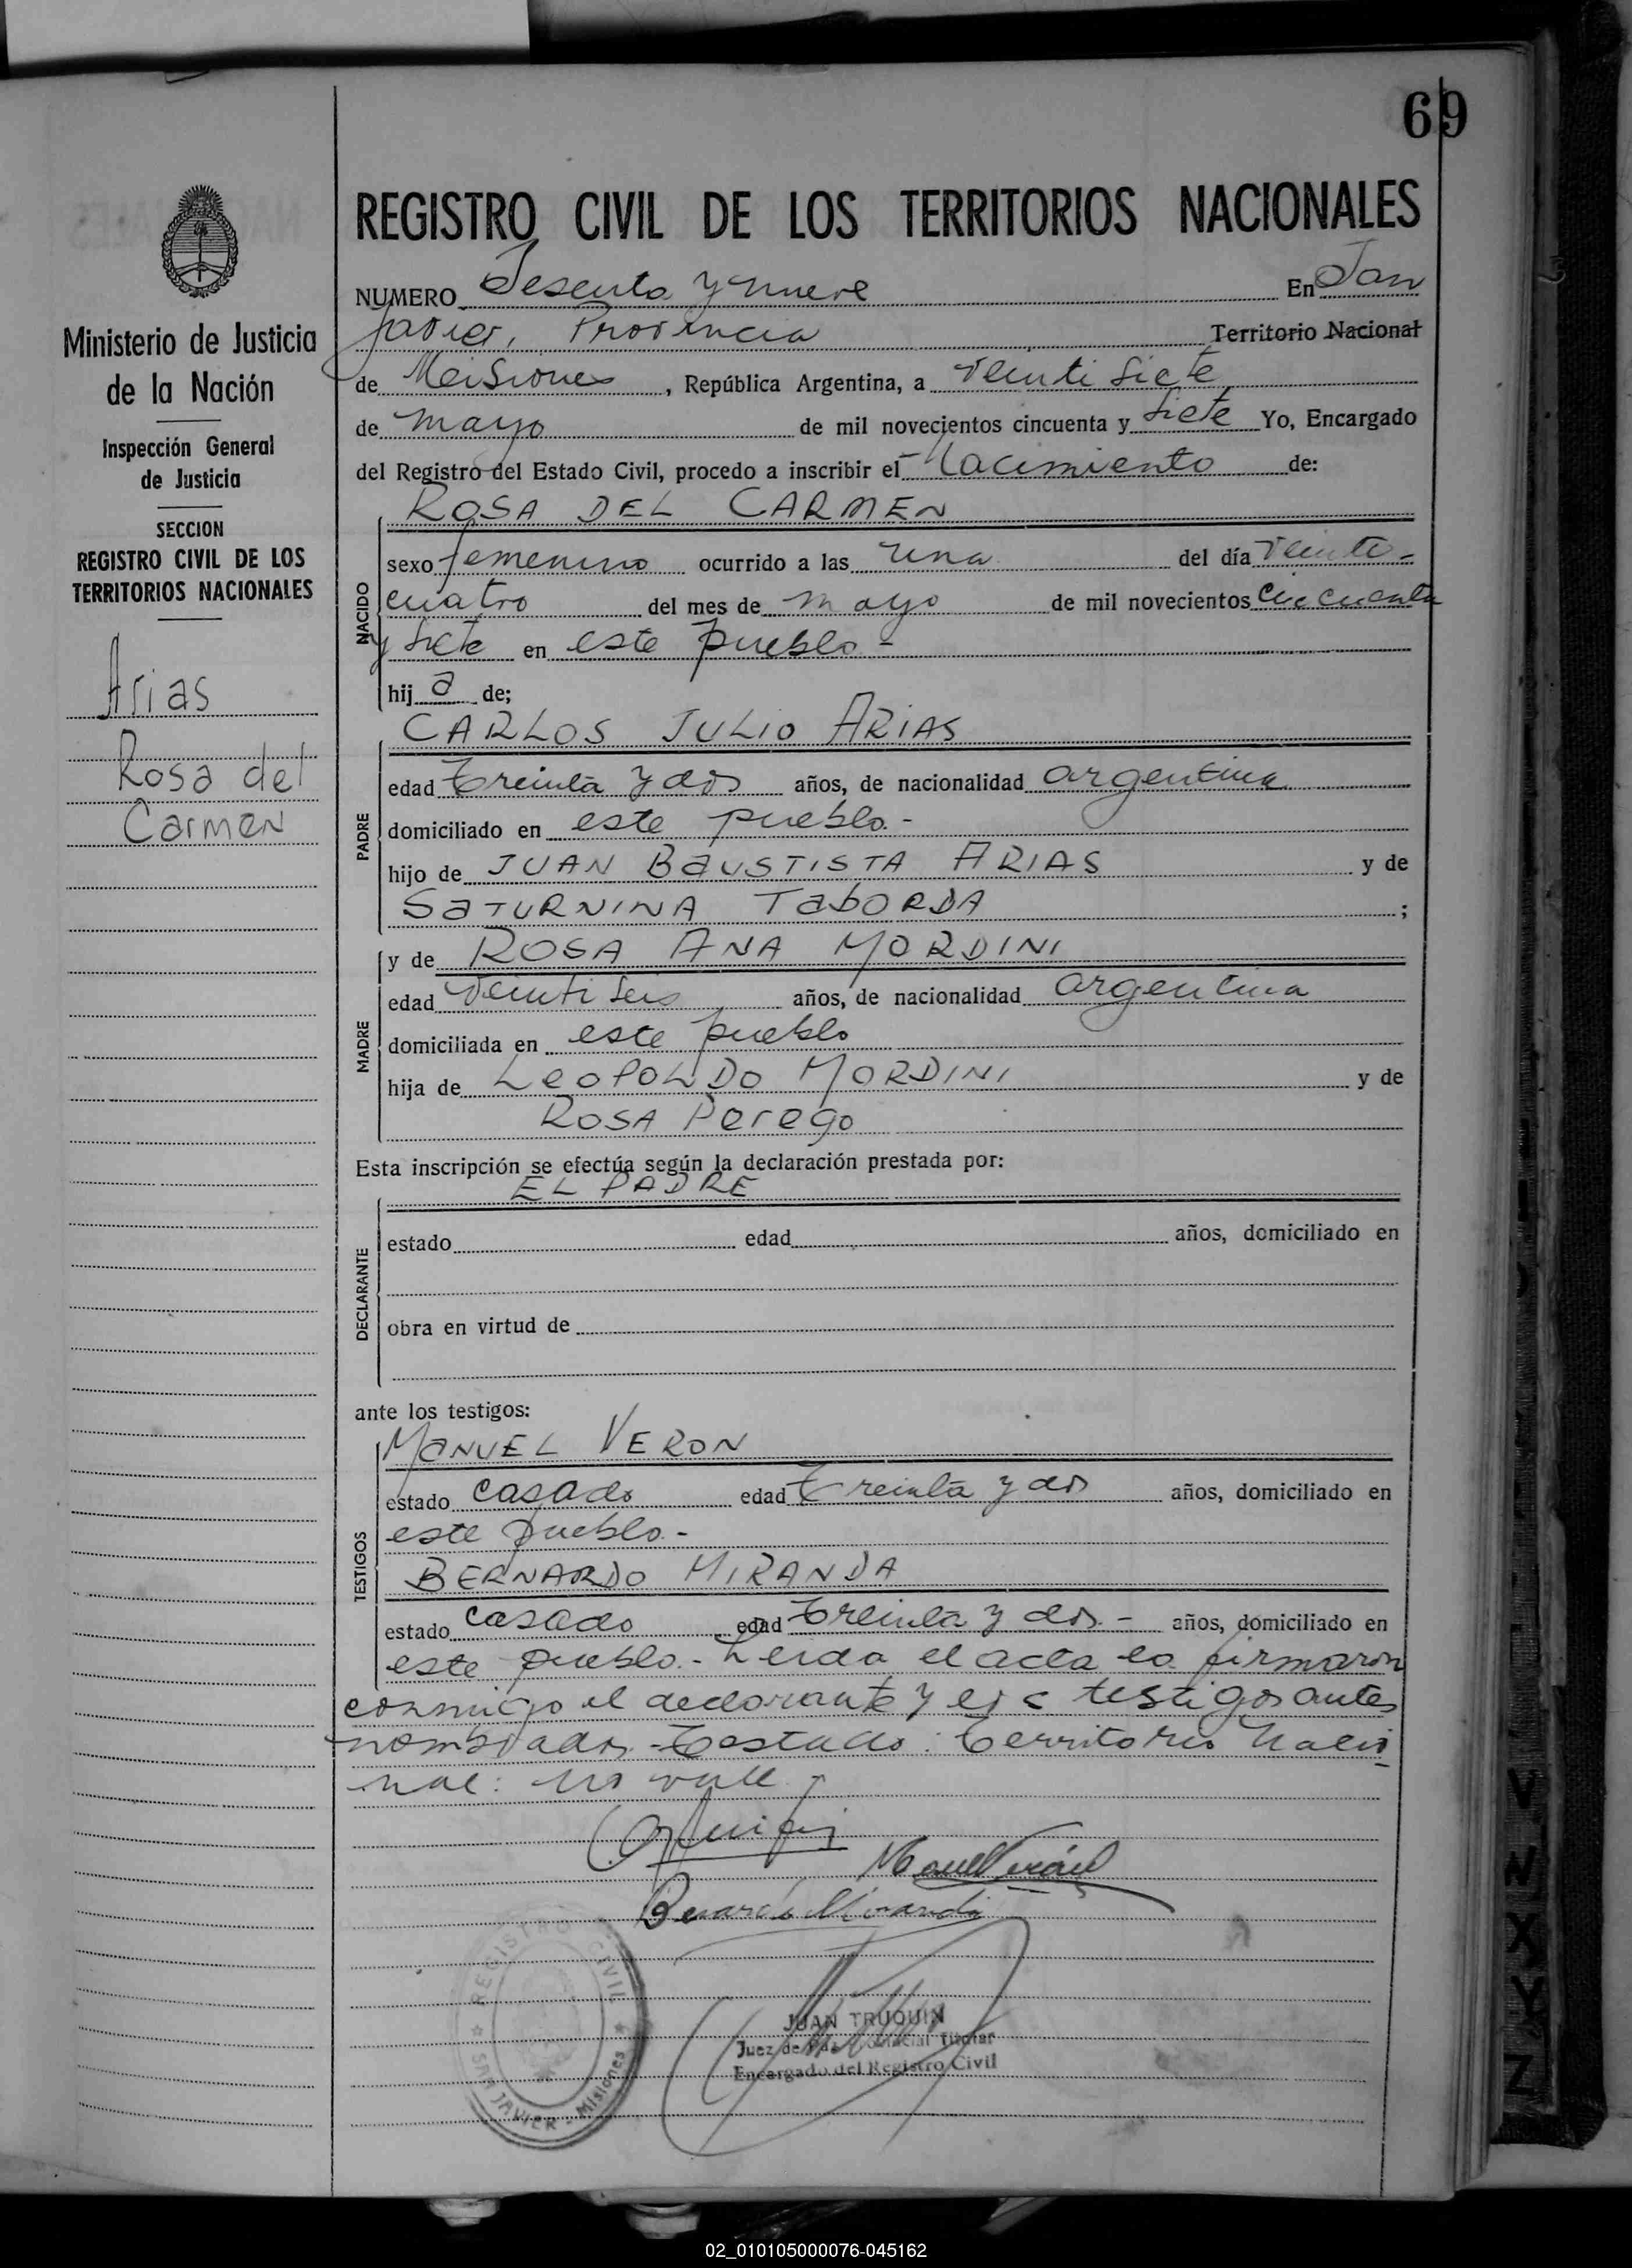 69
REGISTRO CIVIL DE LOS TERRITORIOS NACIONALES
NUMERO Sesenta y nueve En San
Javier, Provincia Territorio Nacional
de Misiones, República Argentina, a veinti siete
de mayo de mil novecientos cincuenta y siete Yo, Encargado
del Registro del Estado Civil, procedo a inscribir el Nacimiento de:
ROSA DEL CARMEN
NACIDO
sexo femenino ocurrido a las una del día veinti-
cuatro del mes de mayo de mil novecientos cincuenta
y siete en este pueblo -
hij a de;
CARLOS JULIO ARIAS
PADRE
edad treinta y dos años, de nacionalidad argentina
domiciliado en este pueblo.-
hijo de JUAN BAUSTISTA ARIAS y de
SATURNINA TABORDA ;
y de ROSA ANA MORDINI
MADRE
edad veinti seis años, de nacionalidad argentina
domiciliada en este pueblo
hija de LEOPOLDO MORDINI y de
ROSA Perego
Esta inscripción se efectúa según la declaración prestada por:
EL PADRE
DECLARANTE
estado edad años, domiciliado en
obra en virtud de
ante los testigos:
MANUEL VERON
TESTIGOS
estado casado edad treinta y dos años, domiciliado en
este pueblo.-
BERNARDO MIRANDA
estado casado edad treinta y dos.- años, domiciliado en
este pueblo.- Leida el acta la firmaron
conmigo el declarante y los testigos antes
nombrados.- Testado: territorio Nacio
nal: no vale.-
Manuel Verón
Bernardo Miranda
JUAN TRUQUIN
Juez de Paz Titular
Encargado del Registro Civil
REGISTRO CIVIL
SAN JAVIER - Misiones
Ministerio de Justicia
de la Nación
Inspección General
de Justicia
SECCION
REGISTRO CIVIL DE LOS
TERRITORIOS NACIONALES
Arias
Rosa del
Carmen
V
W
X
Y
Z
02_010105000076-045162